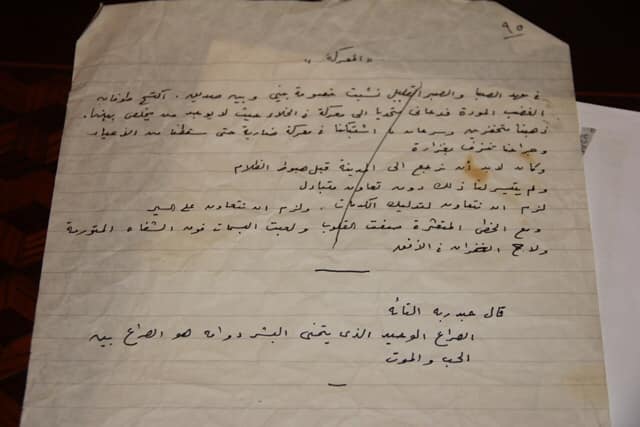 ٩٥
"المعركة"
فى عهد الصبا والصبر القليل نشبت خصومة بينى وبين صديق . اكتسح طوفان
الغضب المودة فدعانى متحديا الى معركة فى الخلاء حيث لا يوجد من يخلص بيننا .
ذهبنا متحفزين وسرعان ما اشتبكنا فى معركة ضارية حتى سقطنا من الاعياء
وجراحنا تنزف بغزارة
وكان لابد أن نرجع الى المدينة قبل هبوط الظلام
ولم يتيسر لنا ذلك دون تعاون متبادل
لزم ان نتعاون لتدليك الكدمات ، ولزم ان نتعاون على السير
ومع الخطى المتعثرة صفت القلوب ولعبت البسمات فوق الشفاه المتورمة
ولاح الغفران فى الأفق
قال عبد ربه التائه
الصراع الوحيد الذى يتمنى البشر دوامه هو الصراع بين
الحب والموت